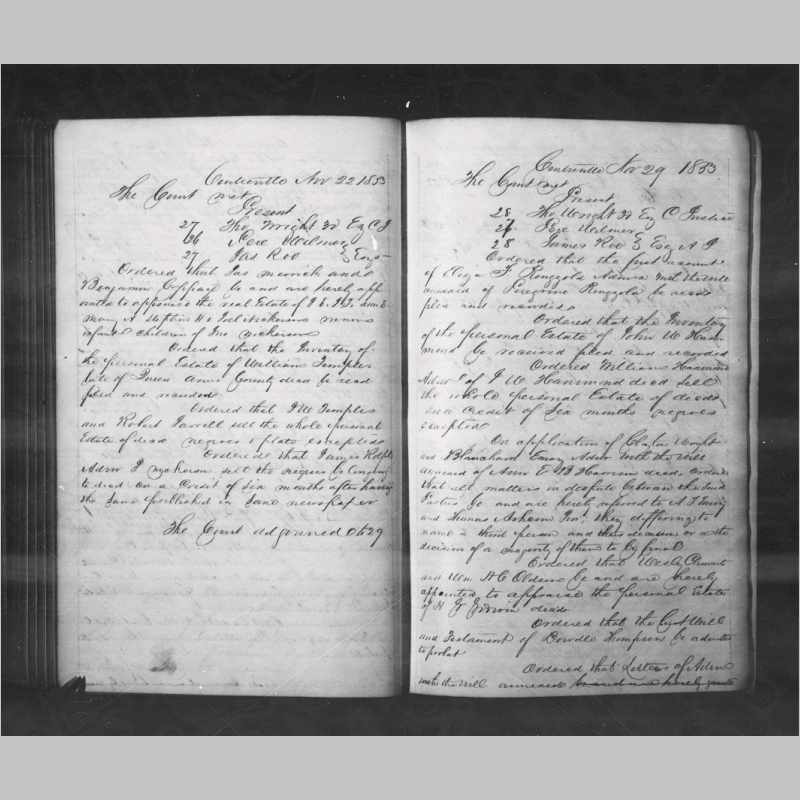 Centreville Nov 22 1853
The Court met
Present
27 Tho Wright 3d Esq C J
26 Pere Wilmer
27 Jas Roe } Esqs
Ordered that Jas Merrick and
Benjamin be and are hereby app
ointed to appraise the real Estate of
infant children of Jno Nickerson
Ordered that the Inventory of
the personal Estate of William Temples
late of Queen Anns County decd be recd
filed and recorded
Ordered that Temples
and Robert Jarrell sell the whole personal
Estate of decd negroes & plate excepted
Ordered that James Rolph
Admr Nickerson sell the negroes belonging
to decd on a Credit of Six months after having
the Same published in Some newspaper
The Court adjourned 29
Centreville Nov 29 1853
The Court met
Present
28 Tho Wright 3d Esq C Justice
27 Pere Wilmer
28 James Roe } Esqs A J
Ordered that the first account
of Eliza F Ringgold Admrx with the will
annexed of Peregrine Ringgold be recd
filed and recorded
Ordered that the Inventory
of the personal Estate of John W Ham
mond be received filed and recorded
Ordered William Hammond
Admr of J W Hammond decd sell
the whole personal Estate of decd
on a credit of Six months negroes
excepted
On application of Wright
and Blanchard Emory Admr with the will
annexed of Ann E Harrison decd ordered
that all matters in dispute between the said
Parties be and are hereby referred to A J Emory
and Thomas they differing to
name a third person and their decision or the
decision of a majority of them to be final
Ordered that
and Wm H C be and are hereby
appointed to appraise the personal Estate
of H J decd
Ordered that the last will
and Testament of Thompson be admitted
to probat
Ordered that Letters of Admn
with the will annexed be and are hereby granted